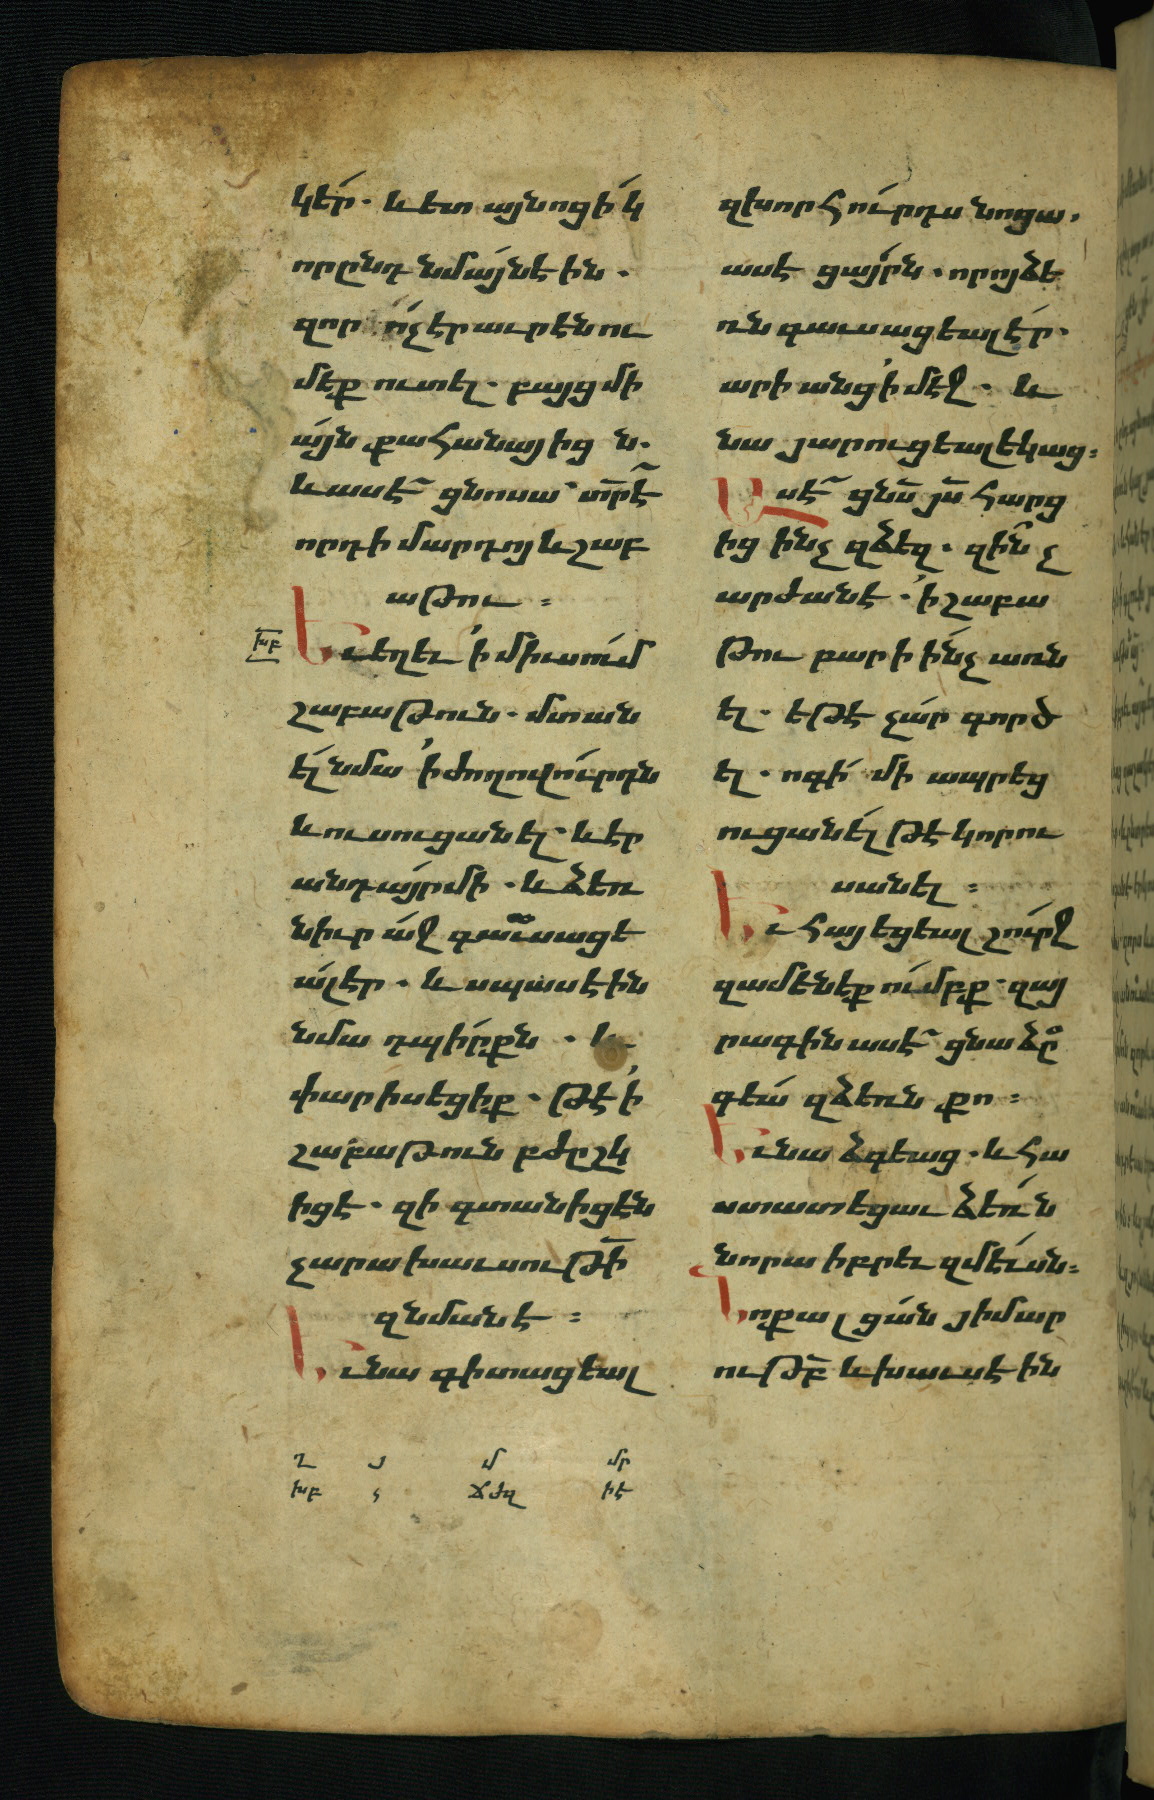 կէր. և ետ այնոցիկ
որընդ նմայնէին.
զոր ոչէր աւրէնու
մեք ուտել. բայց մի
այն քահանայից ն.
և ասէ ցնոսա տր է
որդի մարդոյ և շաբ
աթու :
խբ
Եւ եղեւ ի միւսում
շաբաթուն. մտան
ել նմա ի ժողովուրդն
և ուսուցանել. և էր
անդ այր մի. և ձեռ
նիւր աջ գաւսացե
ալէր. և սպասէին
նմա դպիրքն. և
փարիսեցիք. թէ ի
շաբաթուն բժըշկ
իցէ. զի գտանիցեն
չարախաւսութի
զնմանէ :
Եւ նա գիտացեալ
զխորհուրդս նոցա,
ասէ ցայրն. որոյ ձե
ռն գաւսացեալէր.
արի անց ի մէջ. և
նա յարուցեալ եկաց:
Ասէ ցնս յս հարց
ից ինչ զձեզ. զինչ
արժանէ. ի շաբա
թու բարի ինչ առն
ել. եթէ չար գործ
ել. ոգի մի ապրեց
ուցանել թէ կորու
սանել :
Եւ հայեցեալ շուրջ
զամենեքումբք. զայ
րագին ասէ ցնա ձը
գեա զձեռն քո :
Եւ նա ձգեաց. և հա
ստատեցաւ ձեռն
նորա իբրեւ զմեւսն:
Նոքա լցան յիմար
ութբ և խաւսէին
Ղ Յ Մ Մր
խբ ճժզ իէ